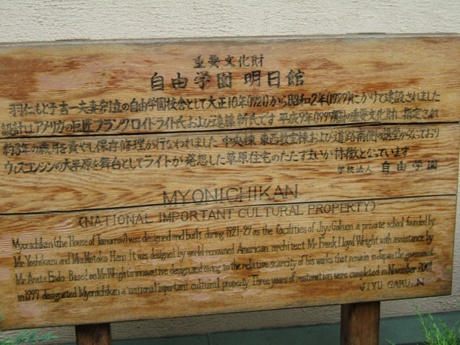 重要文化財
自由学園 明日館
羽仁もと子吉一夫妻創立の自由学園校舎として大正10年(1921)から昭和2年(1927)にかけて建設されました
設計はアメリカの巨匠フランクロイドライト氏および遠藤新氏です 平成9年(1997)国の重要文化財に指定され
約3年の費用を費やし保存修理が行なわれました 中央棟 東西教室棟および道路南側の講堂からなっており
ウィスコンシンの大平原を舞台としてライトが発想した草原住宅のたたずまいが特徴となっています
学校法人 自由学園
MYONICHIKAN
(NATIONAL IMPORTANT CULTURAL PROPERTY)
Myonichikan (the House of Tomorrow) was designed and built during 1921-27 as the facilities of Jiyu Gakuen, a private school founded by
Mr. Yoshikazu and Mrs. Motoko Hani. It was designed by world renowned American architect Mr. Frank Lloyd Wright with assistance by
Mr. Arata Endo. Based on Mr. Wright's innovative designs and owing to the relative scarcity of his works that remain in Japan the government
in 1997 designated Myonichikan a national important cultural property. Three years of restoration were completed in November 2001
JIYU GAKUEN